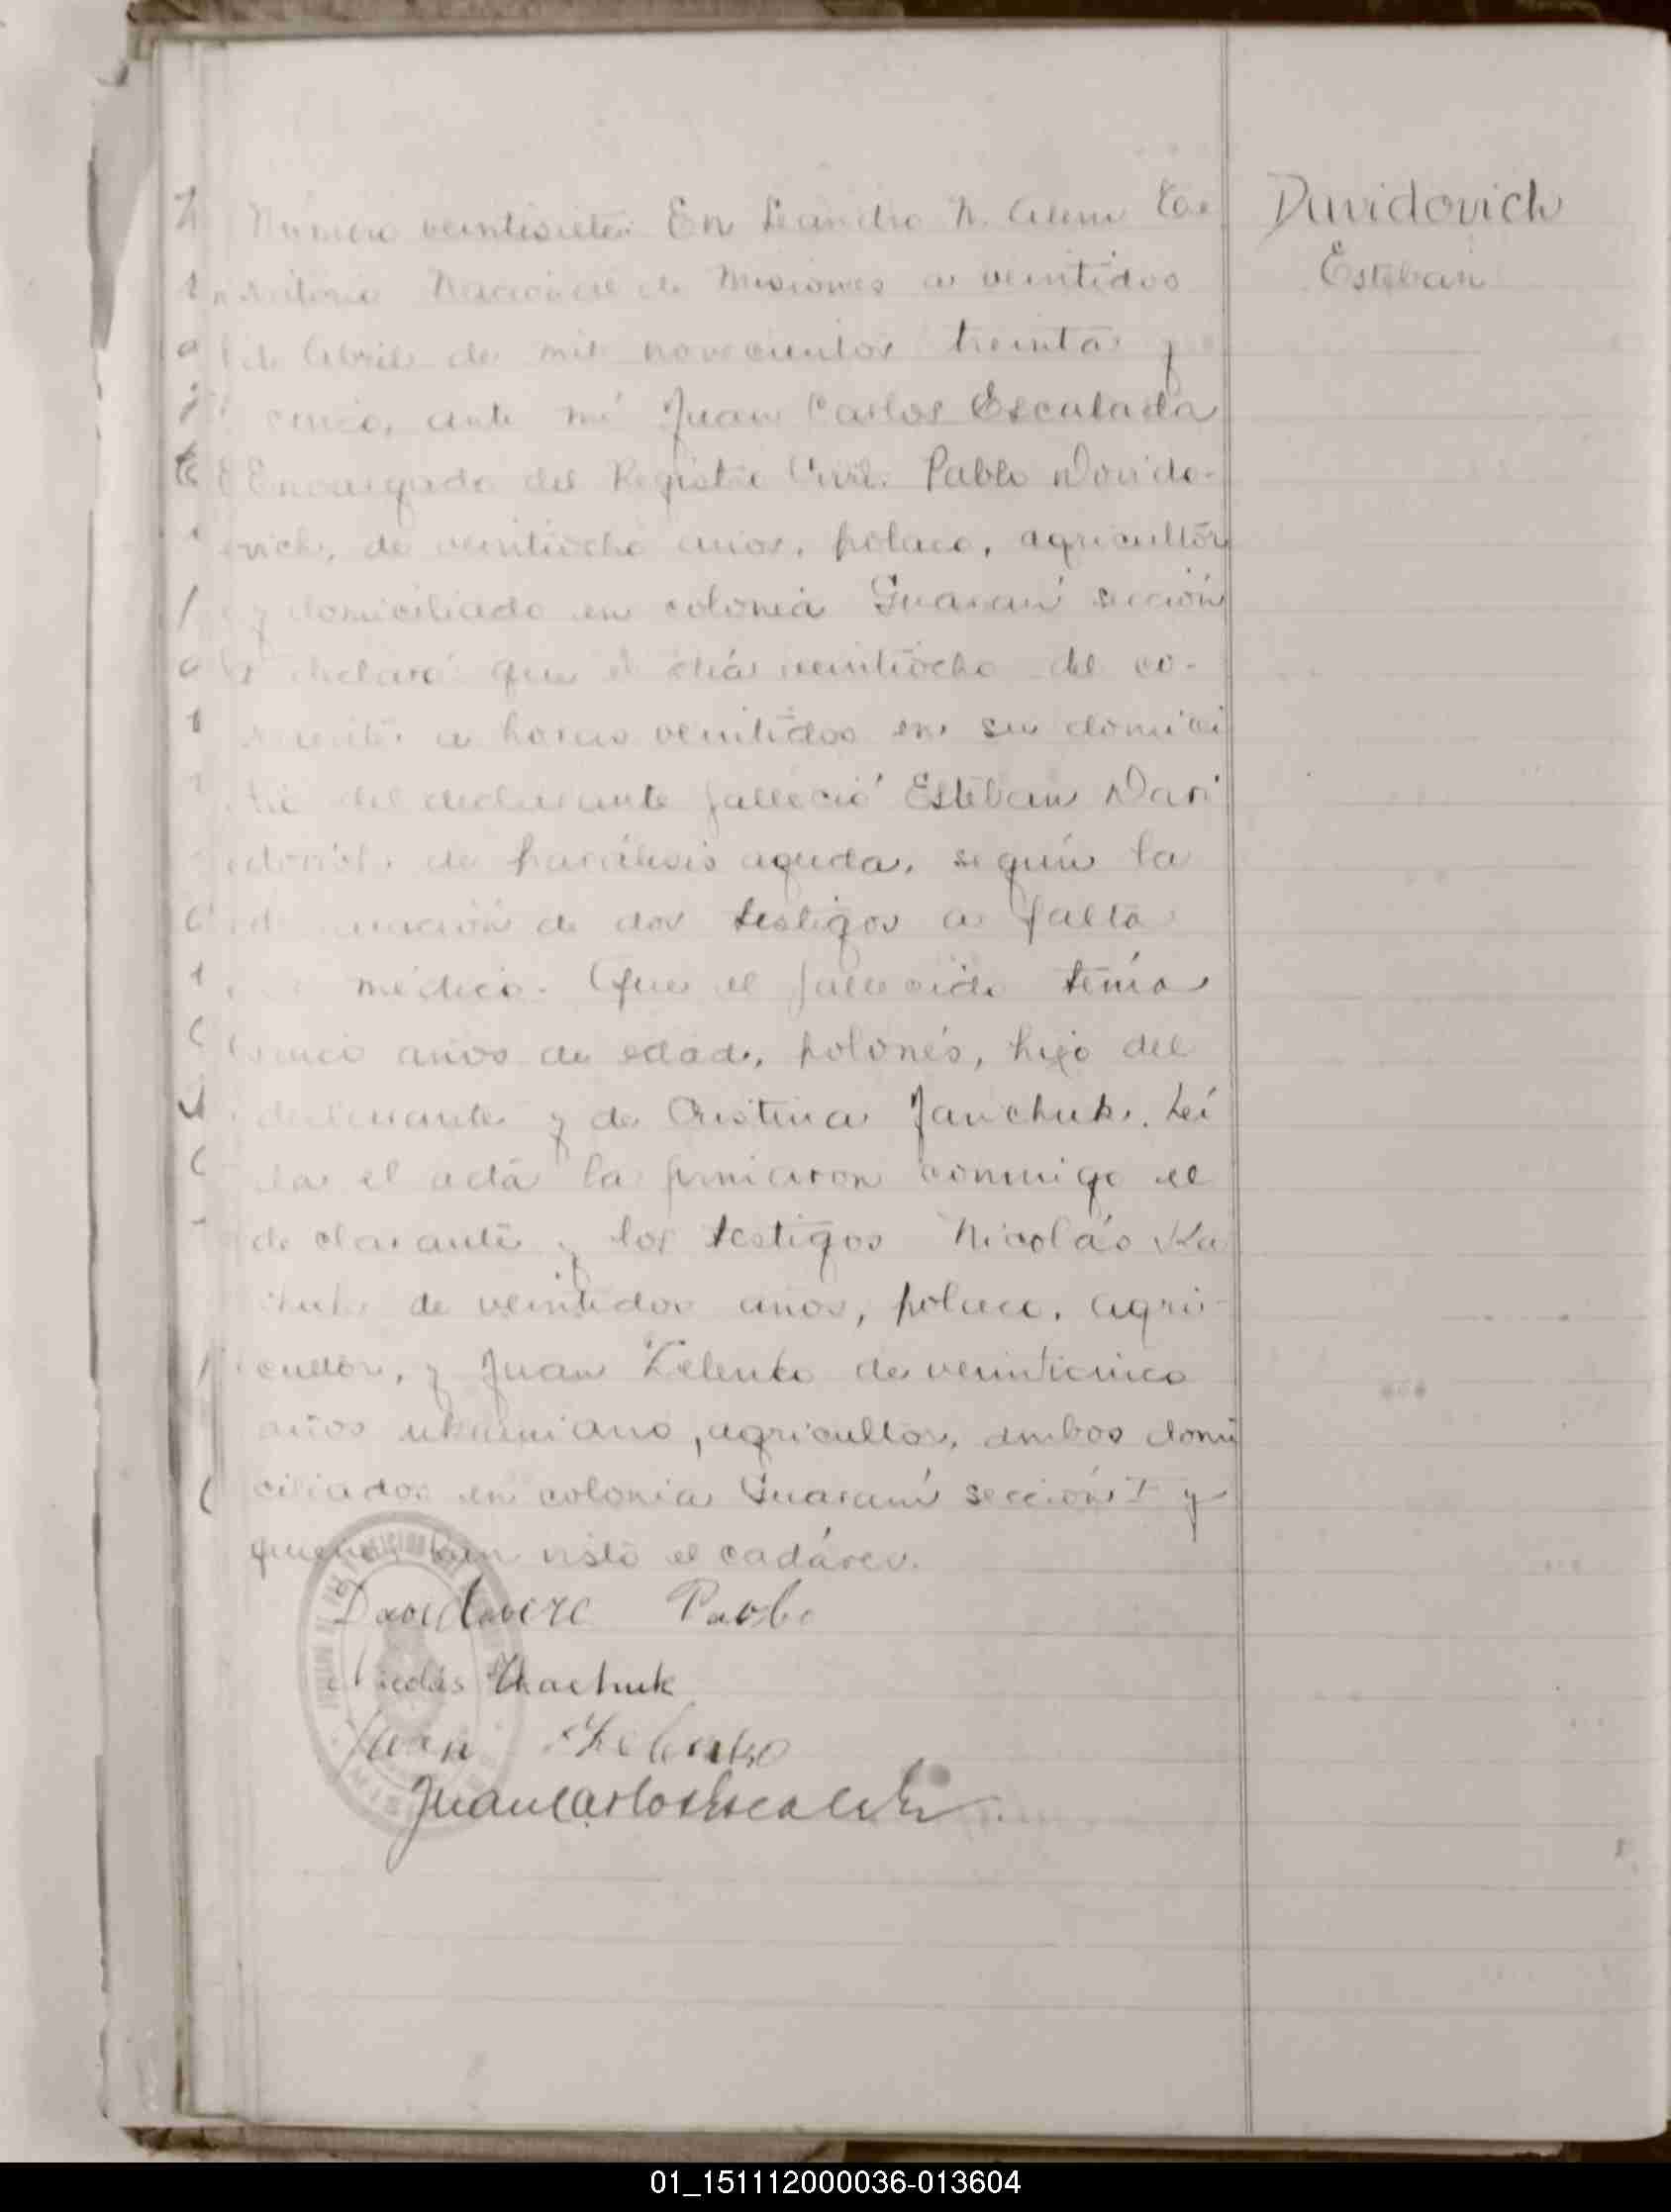 Davidovich
Esteban
Número veintisiete: En Leandro N. Alem Te-
rritorio Nacional de Misiones a veintidos
de Abril de mil novecientos treinta y
cinco, ante mí Juan Carlos Escalada
Encargado del Registro Civil. Pablo Davido-
vich, de veintiocho años, polaco, agricultor
y domiciliado en colonia Guaraní sección
declaró que el día veintiocho del co-
rriente a horas veintidos en su domici
lio del declarante falleció Esteban Davi
dovich de parálisis aguda, según la
de dos testigos a falta
médico. Que el fallecido tenía
cinco años de edad, polonés, hijo del
declarante y de Cristina Janchuk. Leí
da el acta la firmaron conmigo el
declarante y los testigos Nicolás Ka
chuk de veintidos años, polaco, agri-
cultor, y Juan Zelenko de veinticinco
años ukraniano, agricultor, ambos domi
ciliados en colonia Guaraní sección I y
quienes han visto el cadáver.
Pablo
Nicolás Tkachuk
Juan Zelenko
Juan Carlos Escalada
01_151112000036-013604